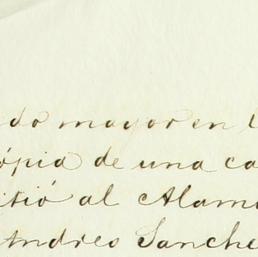 do mayor en l
ópia de una ca
itió al Alam
Andres Sanche